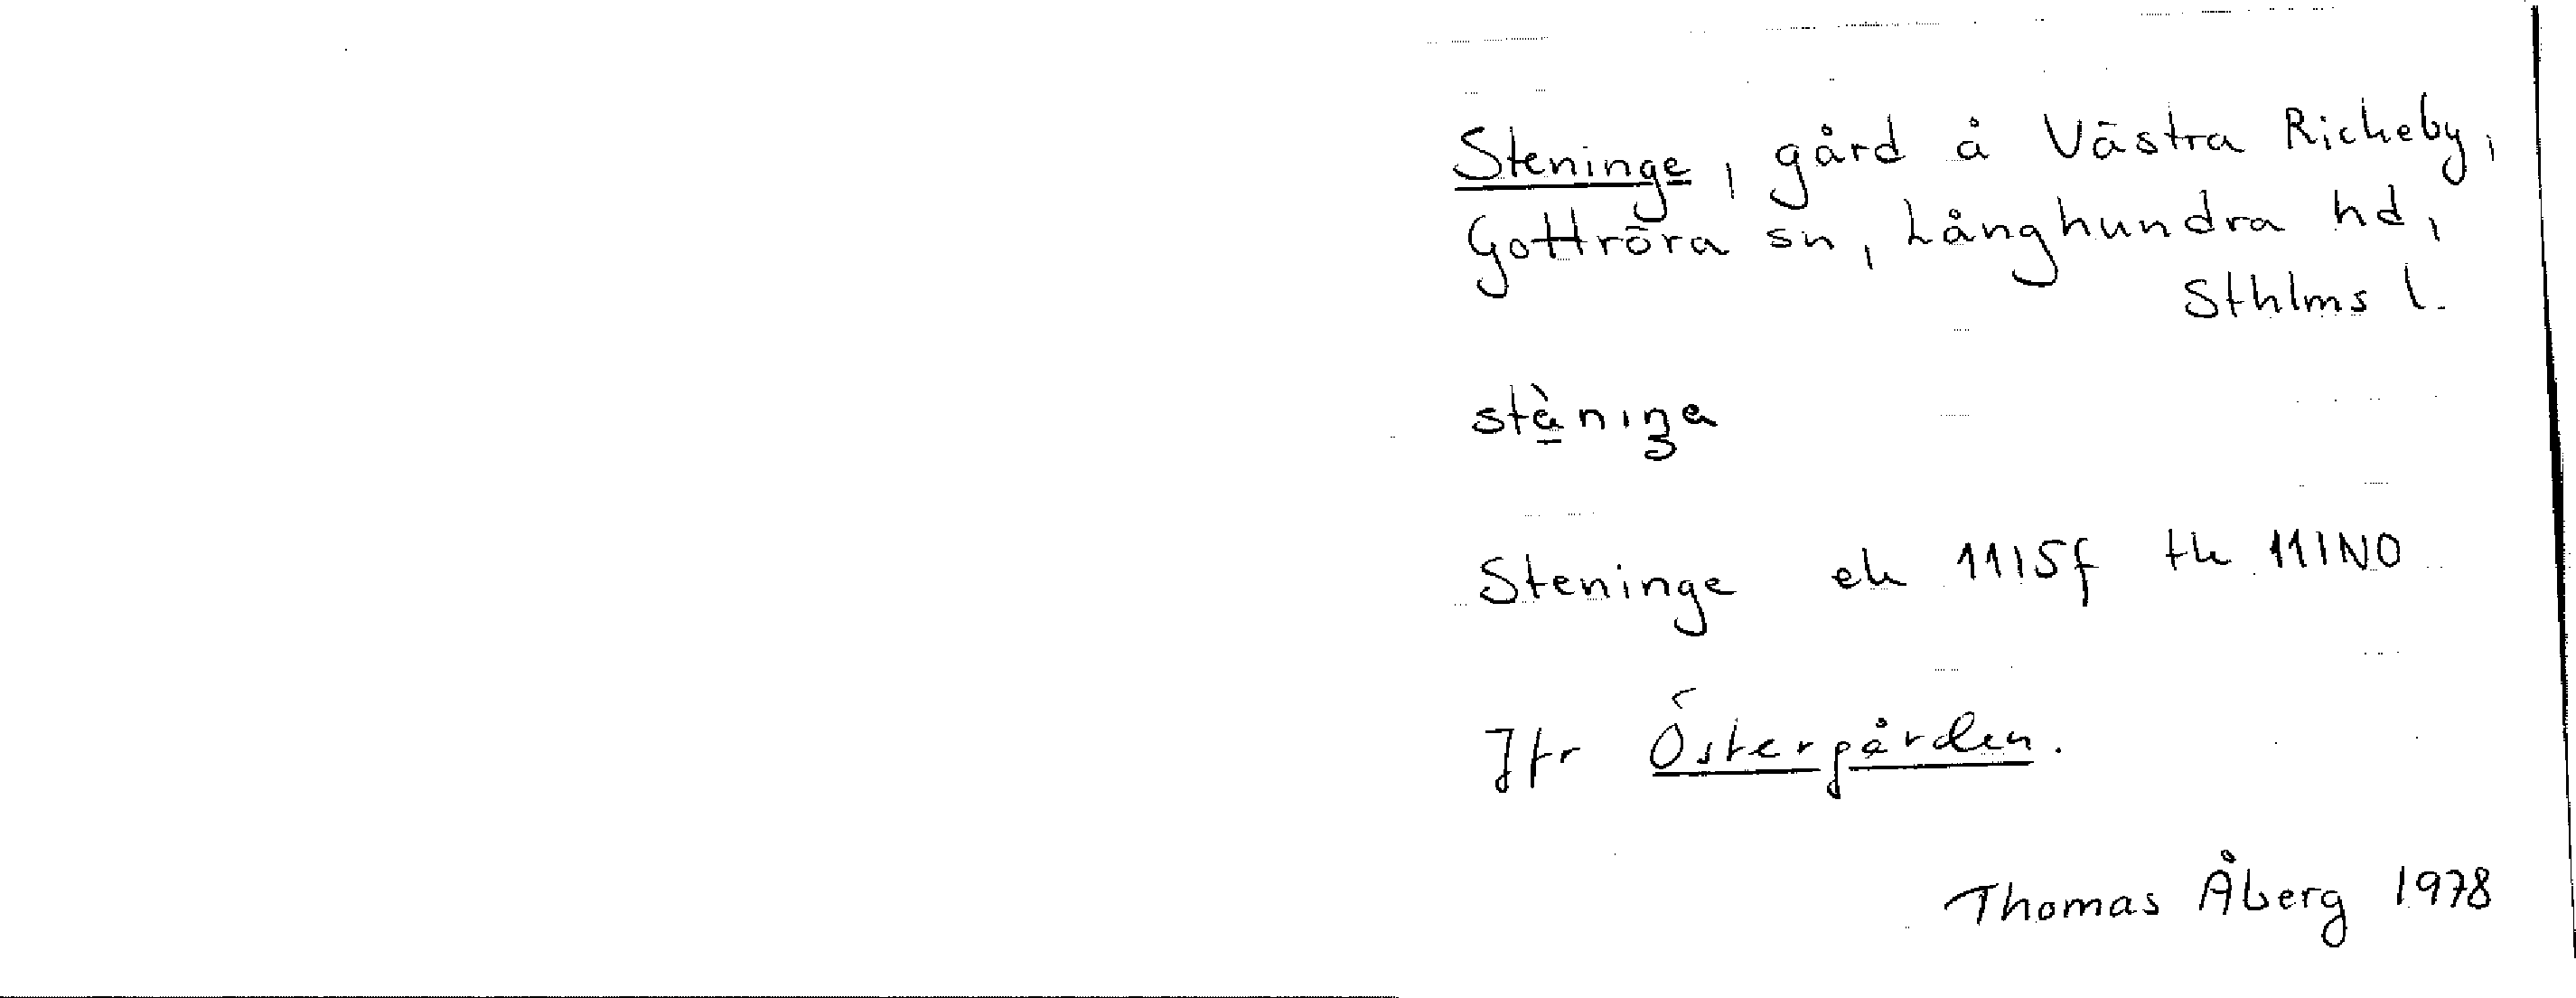 Steninge, gård å Västra Rickeby,
Gottröra sn, Långhundra hd,
Sthlms l.
stè̱nıŋa
Steninge ek 11I5f tk 11INO
Jfr Östergården.
Thomas Åberg 1978